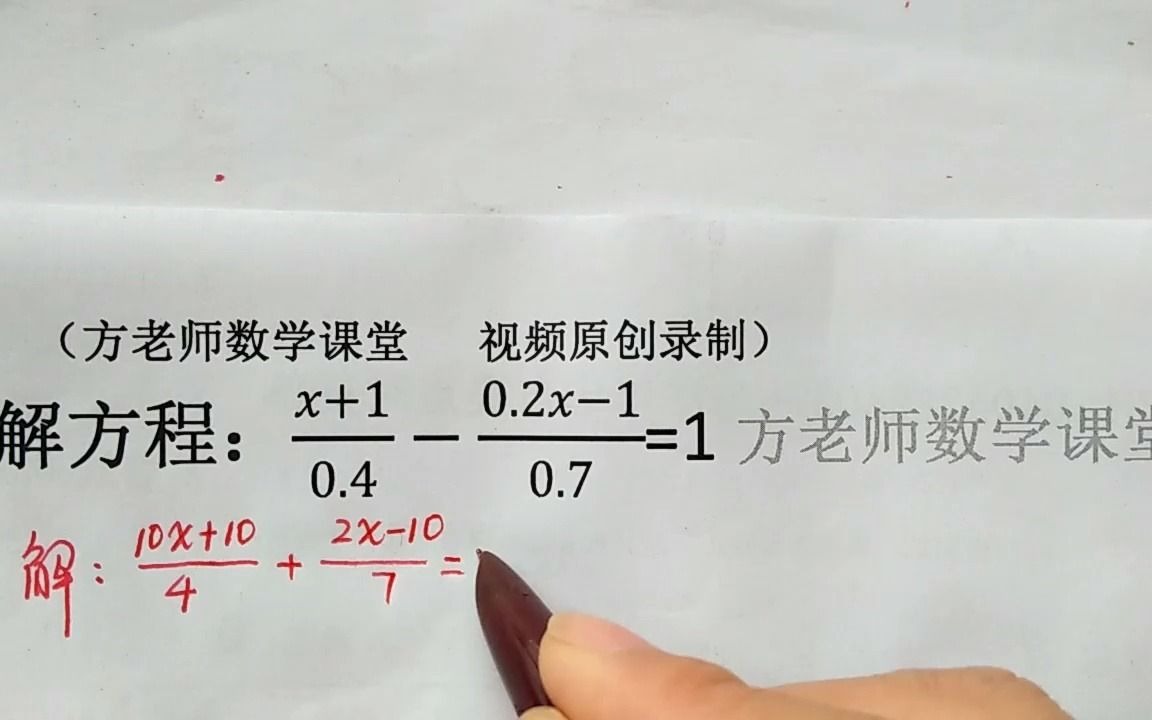 （方老师数学课堂 视频原创录制）
解方程：\frac{x+1}{0.4} − \frac{0.2x−1}{0.7}=1 方老师数学课堂
解：\frac{10x+10}{4} + \frac{2x−10}{7} =